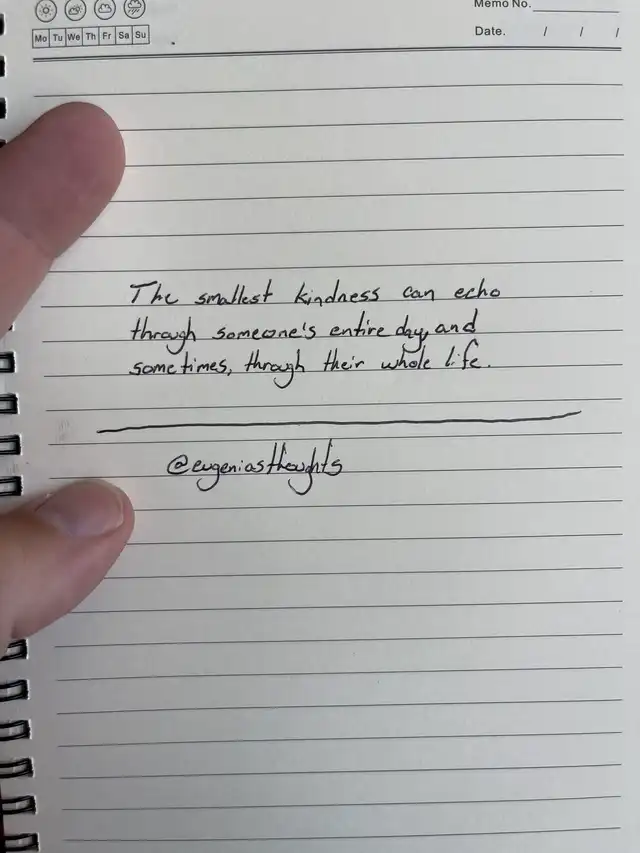 Memo No.
Mo Tu We Th Fr Sa Su
Date. / / /
The smallest kindness can echo
through someone's entire day, and
sometimes, through their whole life.
@eugeniasthoughts